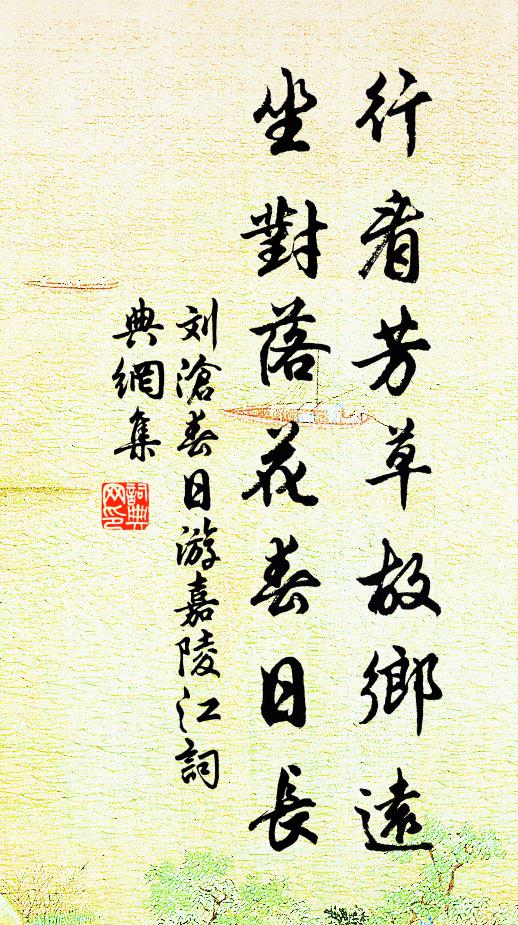 行看芳草故鄉遠
坐對落花春日長
刘滄春日游嘉陵江詞
典網集
詞典网印